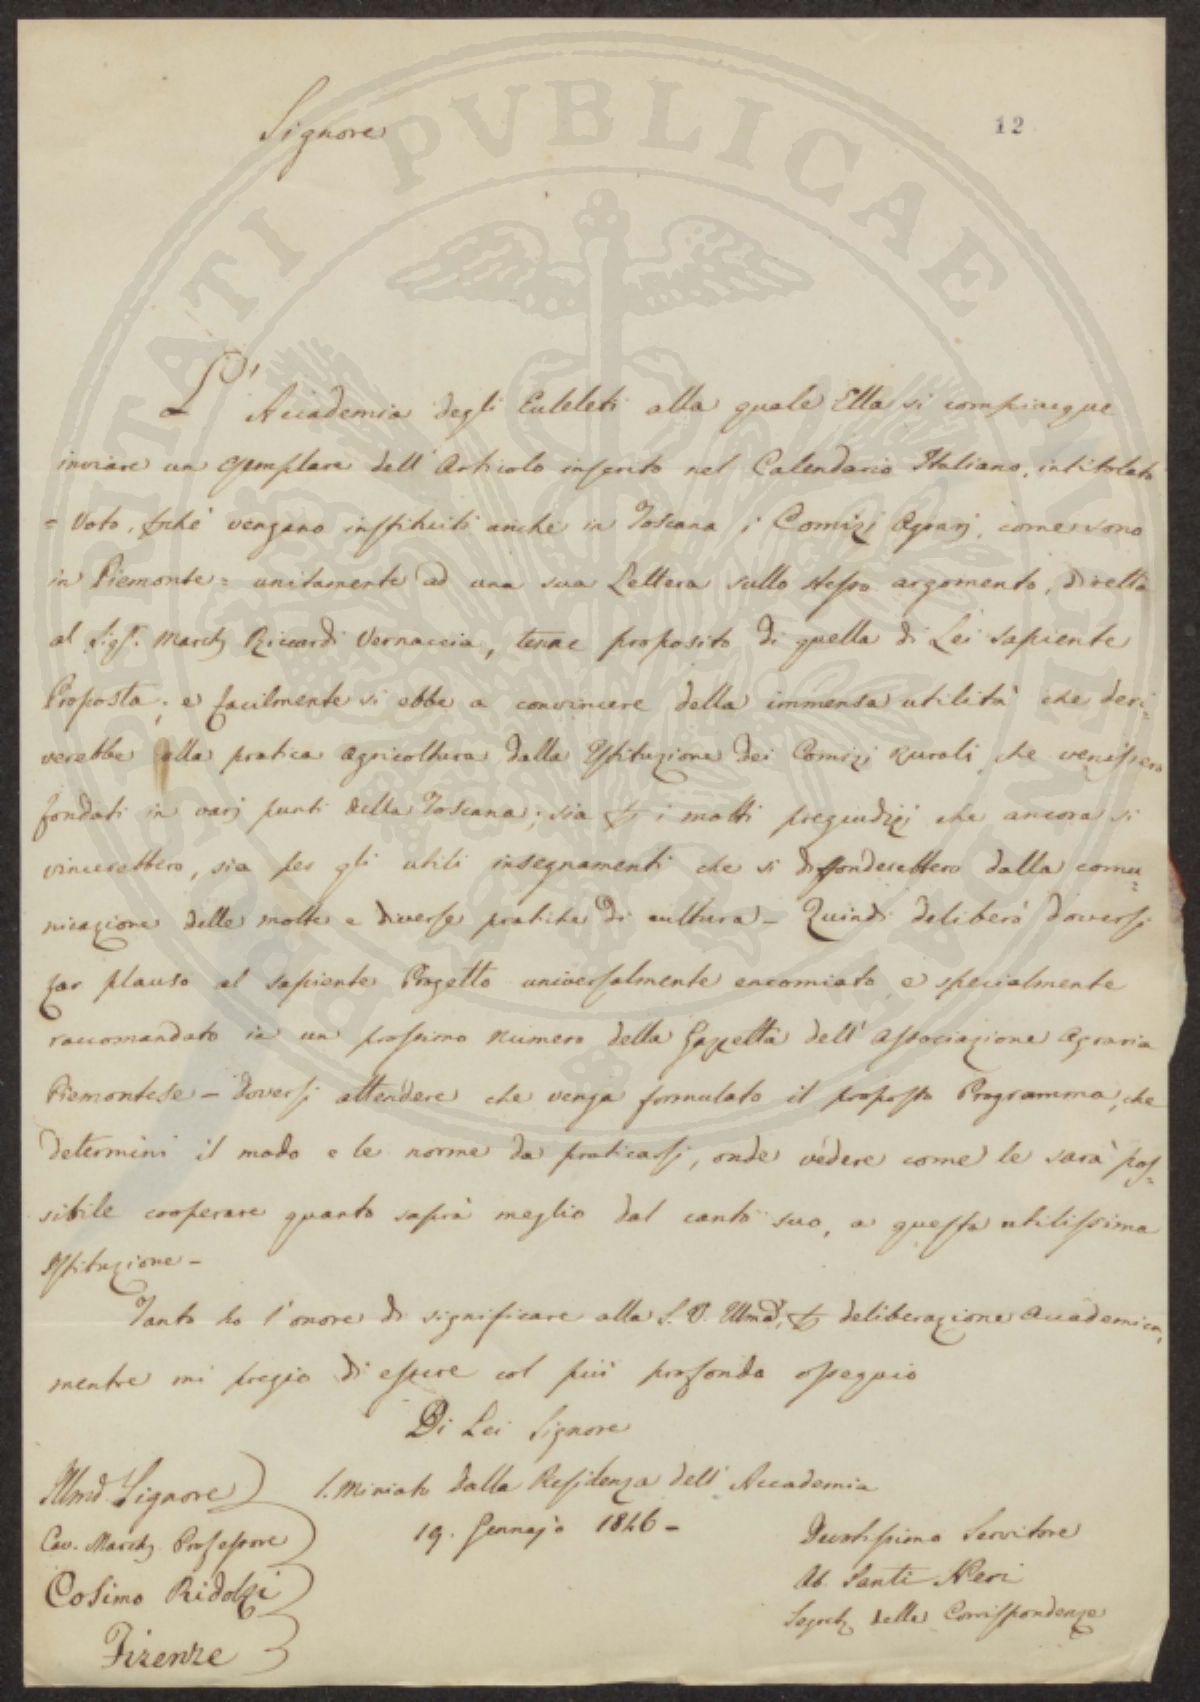 12
Signore
L' Accademia degli Euteleti alla quale Ella si compiacque
inviare un esemplare dell' Articolo inserito nel Calendario Italiano, intitolato
= Voto, perchè vengano instituiti anche in Toscana i Comizj Agrarj, come sono
in Piemonte = unitamente ad una sua Lettera sullo stesso argomento, diretta
al Sigr. March. Riccardi Vernaccia, tenne proposito di quella di Lei sapiente
Proposta; e facilmente si ebbe a convincere della immensa utilità che deri=
verebbe alla pratica agricoltura dalla Istituzione dei Comizj Rurali, che venissero
fondati in varj punti della Toscana; sia per i molti pregiudizj che ancora si
vincerebbero, sia per gli utili insegnamenti che si diffonderebbero dalla comu=
nicazione delle molte e diverse pratiche di cultura — Quindi deliberò doversi
far plauso al sapiente Progetto universalmente encomiato, e specialmente
raccomandato in un prossimo numero della Gazzetta dell' Associazione Agraria
Piemontese — doversi attendere che venga formulato il proposto Programma, che
determini il modo e le norme da praticarsi, onde vedere come le sarà pos=
sibile cooperare quanto saprà meglio dal canto suo, a questa utilissima
Istituzione —
Tanto ho l' onore di significare alla S. V. Illma, per deliberazione Accademica,
mentre mi pregio di essere col più profondo ossequio
Di Lei Signore
S. Miniato dalla Residenza dell' Accademia
19. Gennajo 1846 —
Illmo Signore
Cav. March. Professore
Cosimo Ridolfi
Firenze
Devotissimo Servitore
Ab. Santi Neri
Segret. della Corrispondenza
PVBLICAE